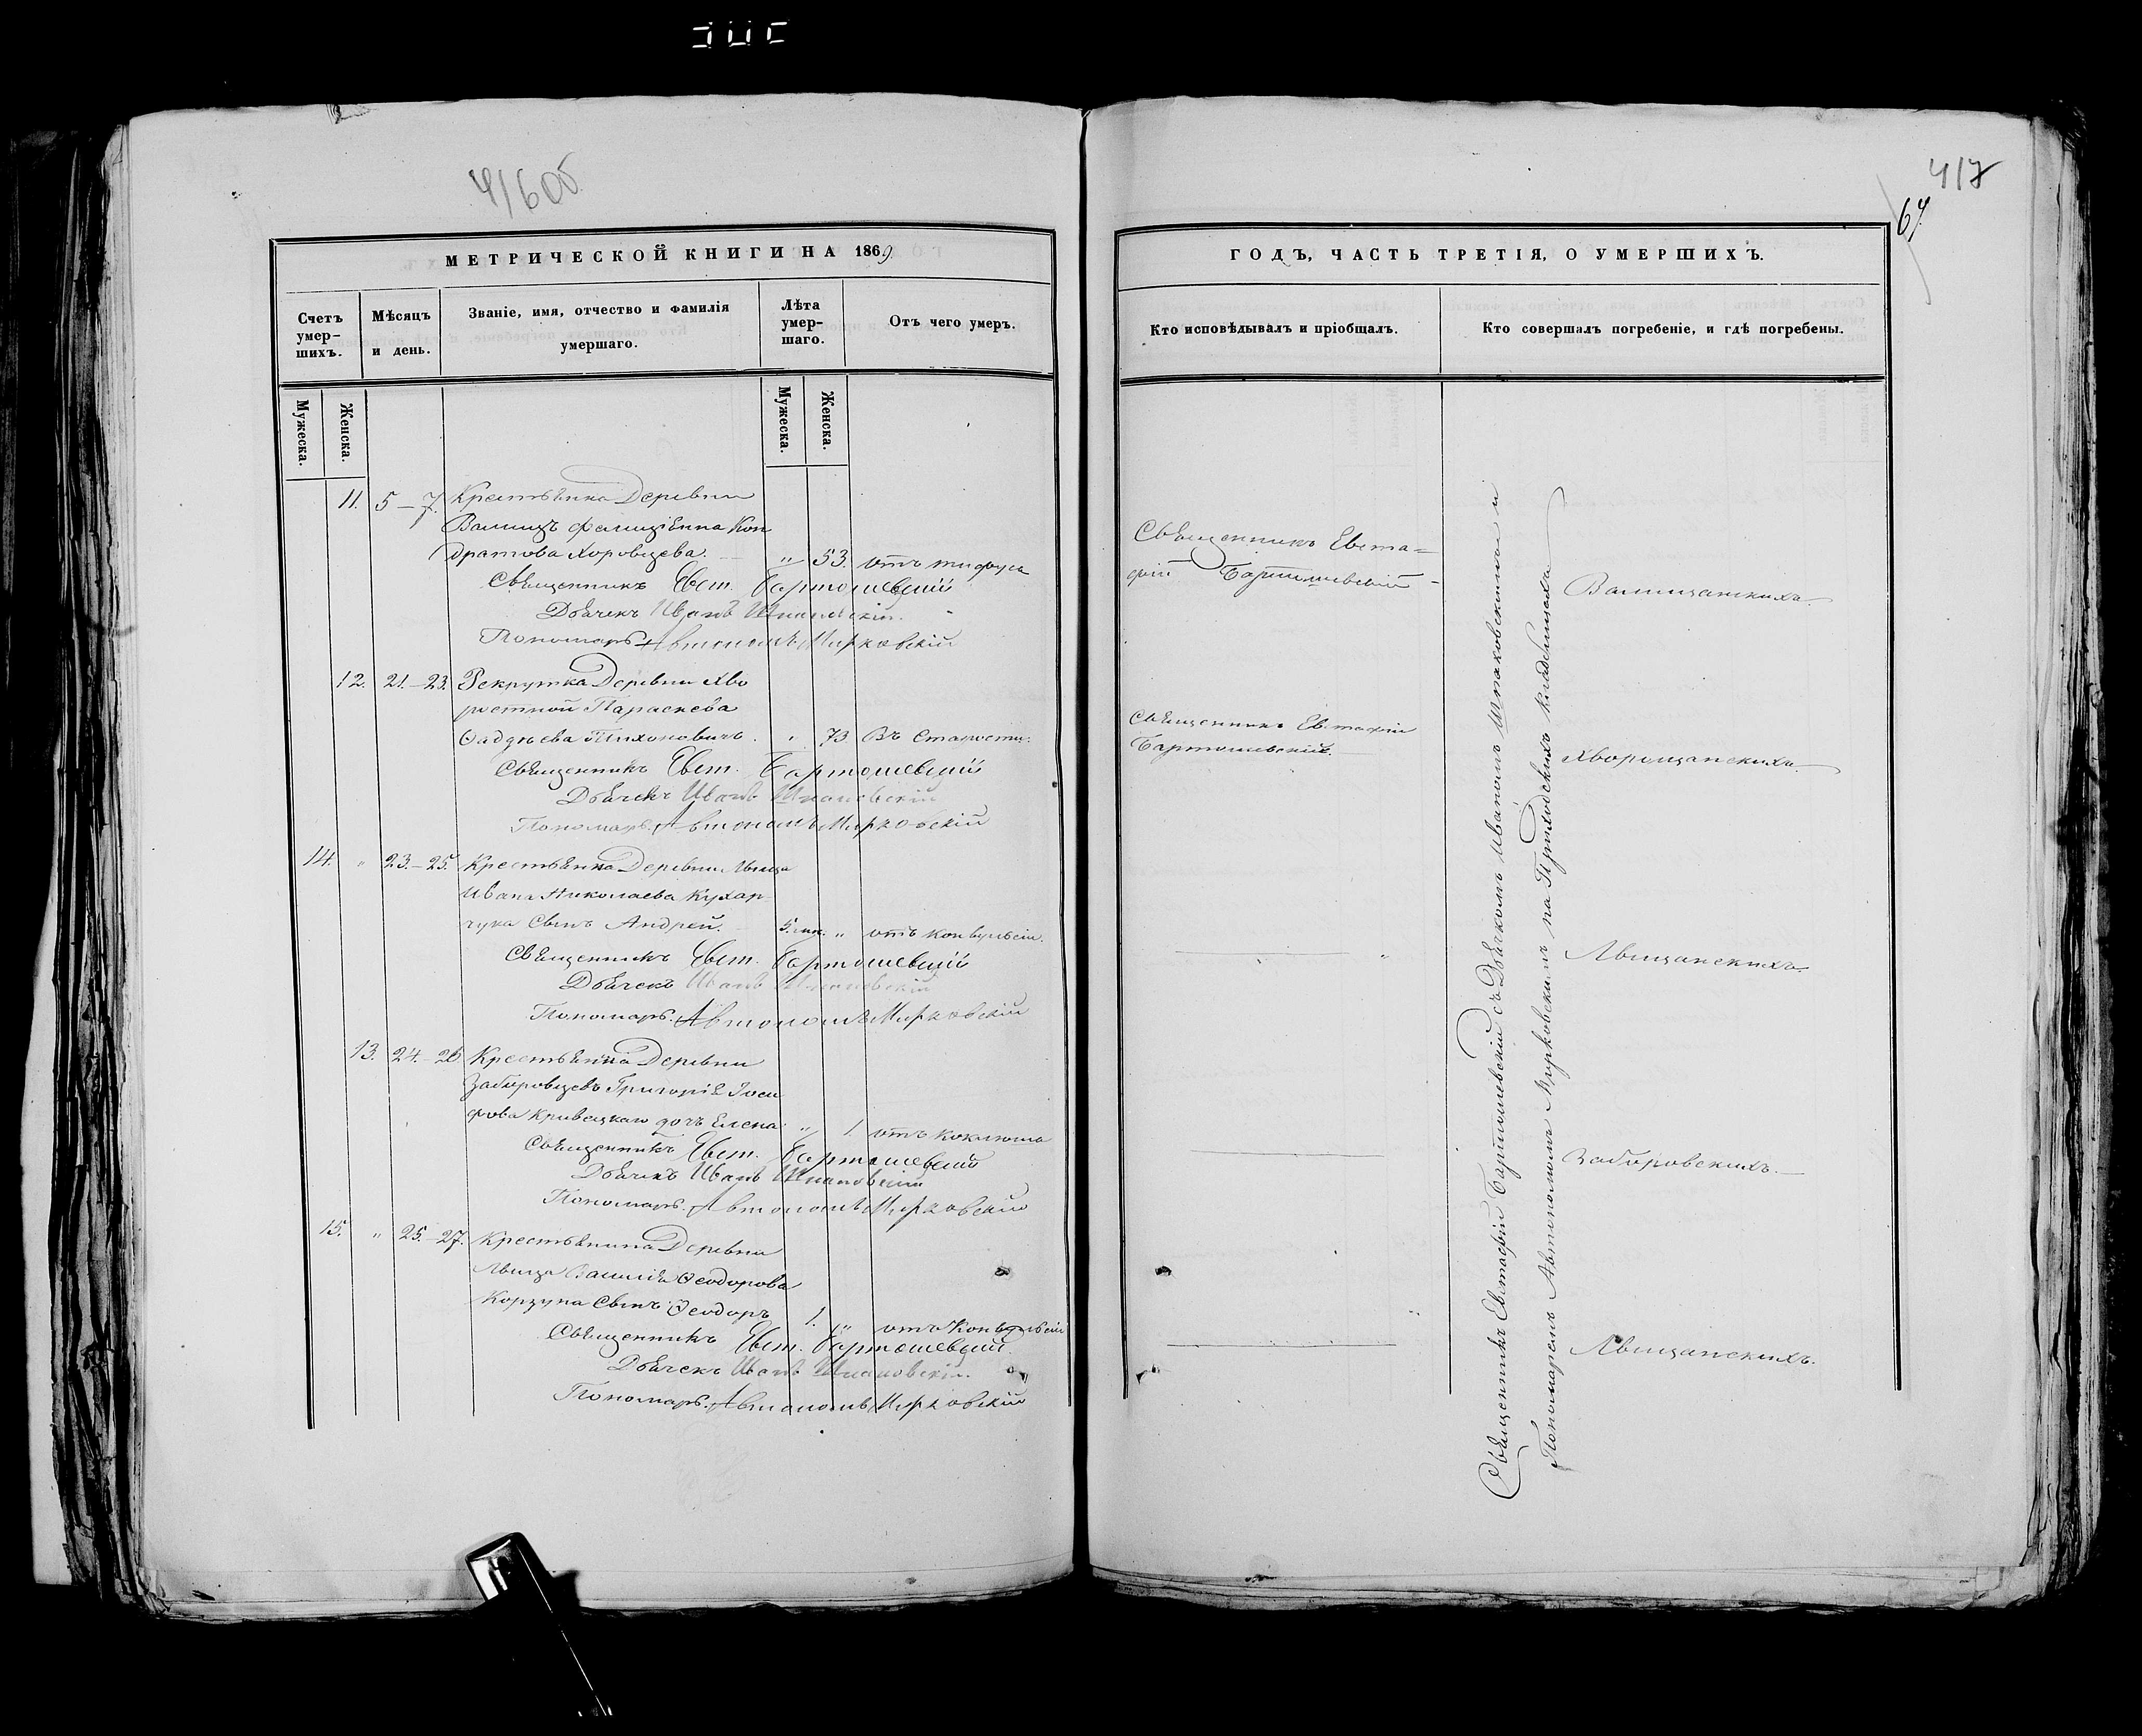 416 об
МЕТРИЧЕСКОЙ КНИГИ НА 1869
Счетъ умер-шихъ.
Мѣсяцъ и день.
Званіе, имя, отчество и фамилія умершаго.
Лѣта умер-шаго.
Отъ чего умеръ.
Мужеска.
Женска.
Мужеска.
Женска.
11. 5–7. Крестьянка Деревни
Кон
дратова Хоровцева. " 53. отъ тифуса
Священникъ Евст. Бартошевскій
Дьячекъ Иванъ Шпаковскій.
Пономарь Автономъ Мирковскій
12. 21.–23. Рекрутка Деревни Хво
ростной Параскева
Фаддѣева Тихоновичъ. " 73 Въ Старости.
Священникъ Евст. Бартошевскій
Дьячекъ Иванъ Шпаковскій
Пономарь. Автономъ Мирковскій
14. " 23.–25. Крестьянина Деревни Лвища
Ивана Николаева Кухар
чука Сынъ Андрей. 5. мѣс. " отъ конвульсіи.
Священникъ Евст. Бартошевскій
Дьячекъ Иванъ Шпаковскій
Пономарь. Автономъ Мирковскій
13. 24.–26. Крестьянина Деревни
Заборовцевъ Григорія Іоси
фова Кривецкаго дочь Елена " 1. отъ коклюша
Священникъ Евст. Бартошевскій
Дьячекъ Иванъ Шпаковскій
Пономарь. Автономъ Мирковскій
15. " 25.–27. Крестьянина Деревни
Лвища Василія Ѳеодорова
Корзуна Сынъ Ѳеодоръ 1. " отъ Конвульсіи
Священникъ Евст. Бартошевскій.
Дьячекъ Иванъ Шпаковскій.
Пономарь. Автономъ Мирковскій
417
67.
ГОДЪ, ЧАСТЬ ТРЕТІЯ, О УМЕРШИХЪ.
Кто исповѣдывалъ и пріобщалъ.
Кто совершалъ погребеніе, и гдѣ погребены.
Священникъ Евста=
фій Бартошевскій
Священникъ Евстафій
Бартошевскій.
Священникъ Евстафій Бартошевскій съ Дьячкомъ Иваномъ Шпаковскимъ и
Пономаремъ Автономомъ Мирковскимъ на Приходскихъ кладбищахъ
Хворощанскихъ.
Лвищанскихъ.
Заборовскихъ.
Лвищанскихъ.